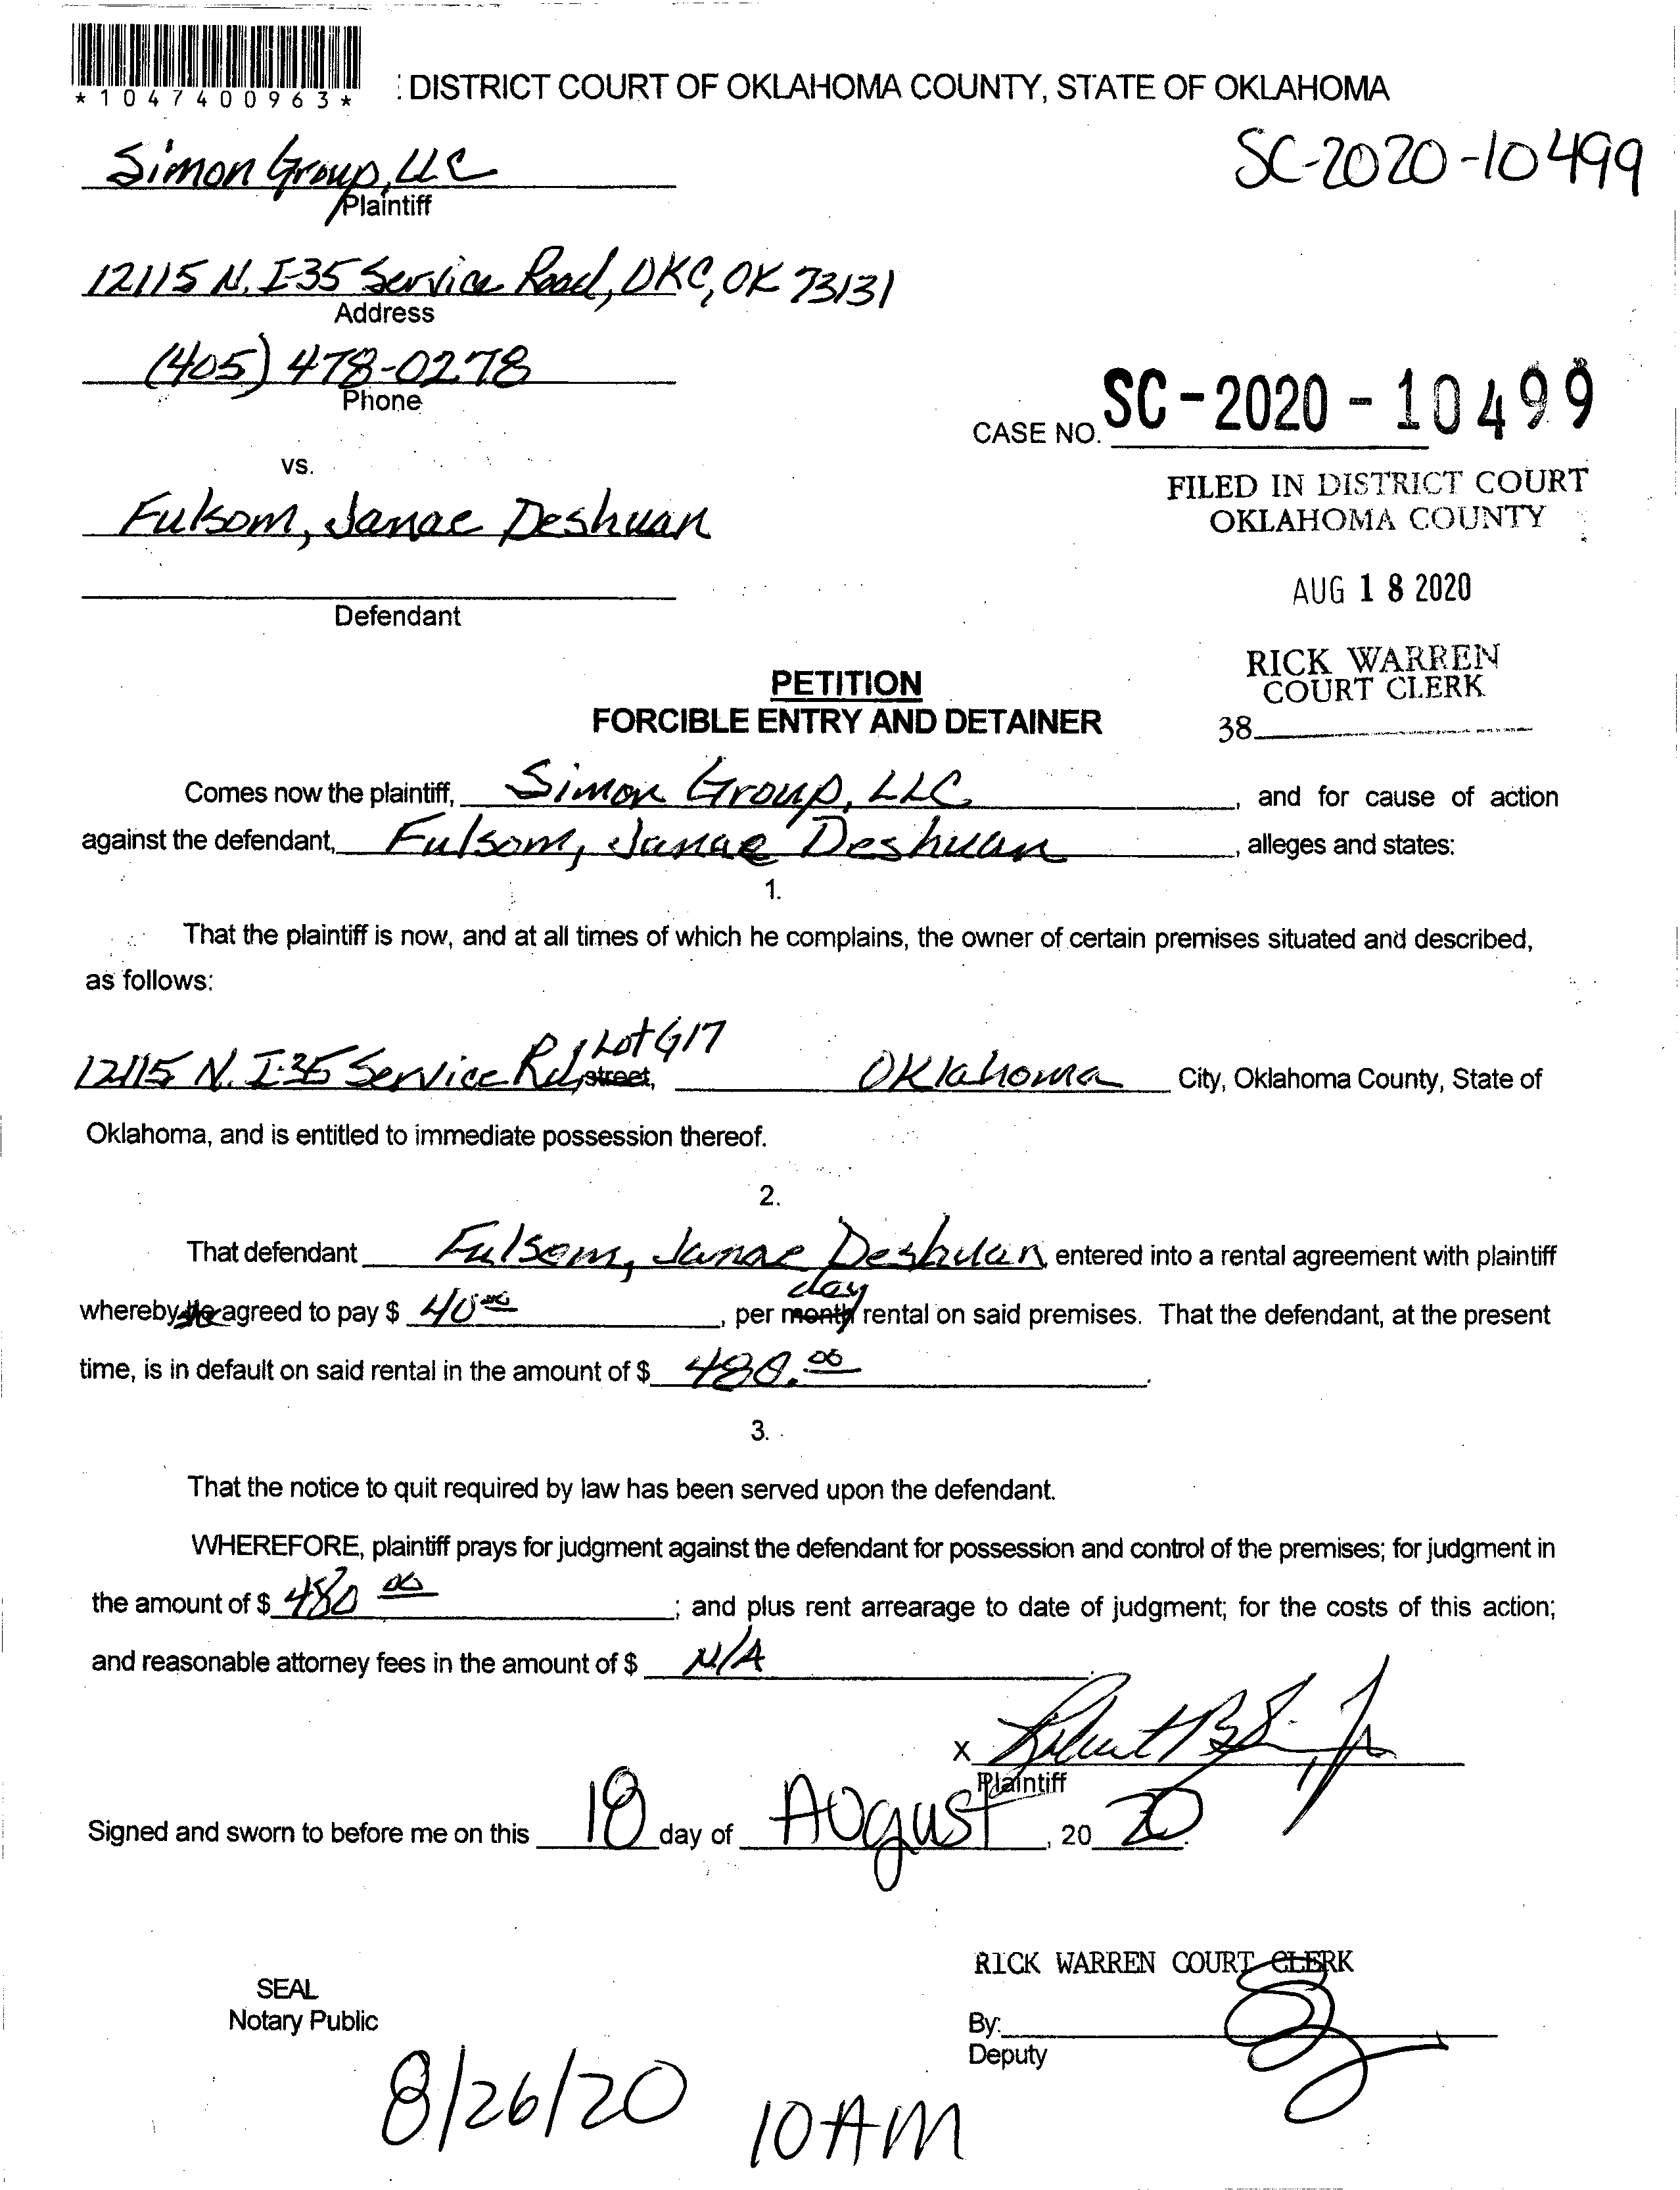 *1047400963*
: DISTRICT COURT OF OKLAHOMA COUNTY, STATE OF OKLAHOMA
SC-2020-10499
Simon Group, LLC
Plaintiff
12115 N. I-35 Service Road, OKC, OK 73131
Address
(405) 478-0278
Phone
CASE NO. SC-2020-10499
vs.
FILED IN DISTRICT COURT
OKLAHOMA COUNTY
Fulsom, Janae Deshuan
AUG 18 2020
Defendant
RICK WARREN
COURT CLERK
38
PETITION
FORCIBLE ENTRY AND DETAINER
Comes now the plaintiff, Simon Group, LLC, and for cause of action
against the defendant, Fulsom, Janae Deshuan, alleges and states:
1.
That the plaintiff is now, and at all times of which he complains, the owner of certain premises situated and described,
as follows:
12115 N. I-35 Service Rd, Lot G17 street, Oklahoma City, Oklahoma County, State of
Oklahoma, and is entitled to immediate possession thereof.
2.
That defendant Fulsom, Janae Deshuan entered into a rental agreement with plaintiff
day
whereby he agreed to pay $ 40 00, per month rental on said premises. That the defendant, at the present
time, is in default on said rental in the amount of $ 480.00.
3.
That the notice to quit required by law has been served upon the defendant.
WHEREFORE, plaintiff prays for judgment against the defendant for possession and control of the premises; for judgment in
the amount of $ 480 00; and plus rent arrearage to date of judgment; for the costs of this action;
and reasonable attorney fees in the amount of $ N/A.
X
Plaintiff
Signed and sworn to before me on this 18 day of August, 20 20.
RICK WARREN COURT CLERK
SEAL
Notary Public
By:
Deputy
8/26/20 10AM